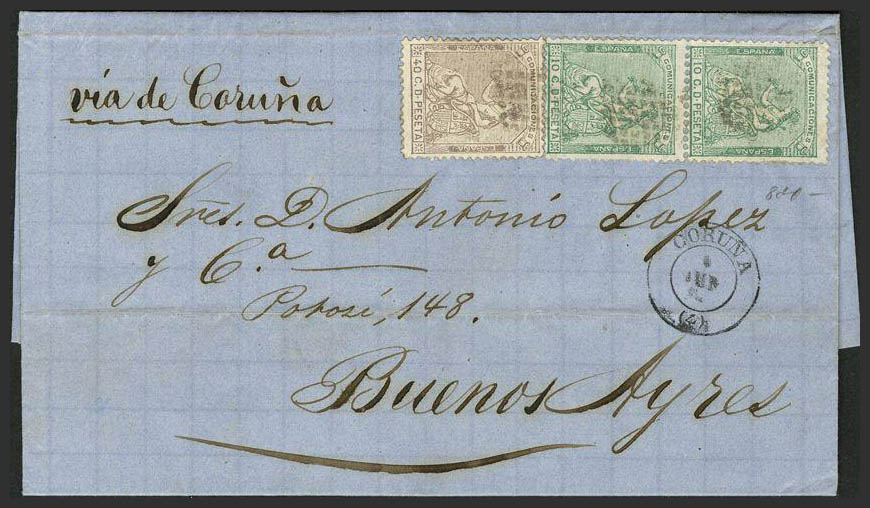 vía de Coruña
ESPAÑA
COMUNICACIONES
40 C. D PESETA
ESPAÑA
ESPAÑA
COMUNICACIONES
10 C. D PESETA
ESPAÑA
ESPAÑA
COMUNICACIONES
10 C. D PESETA
ESPAÑA
800-
Sres. D. Antonio Lopez
y C.a
Potosí, 148.
Buenos Ayres
CORUÑA
JUN
(4)